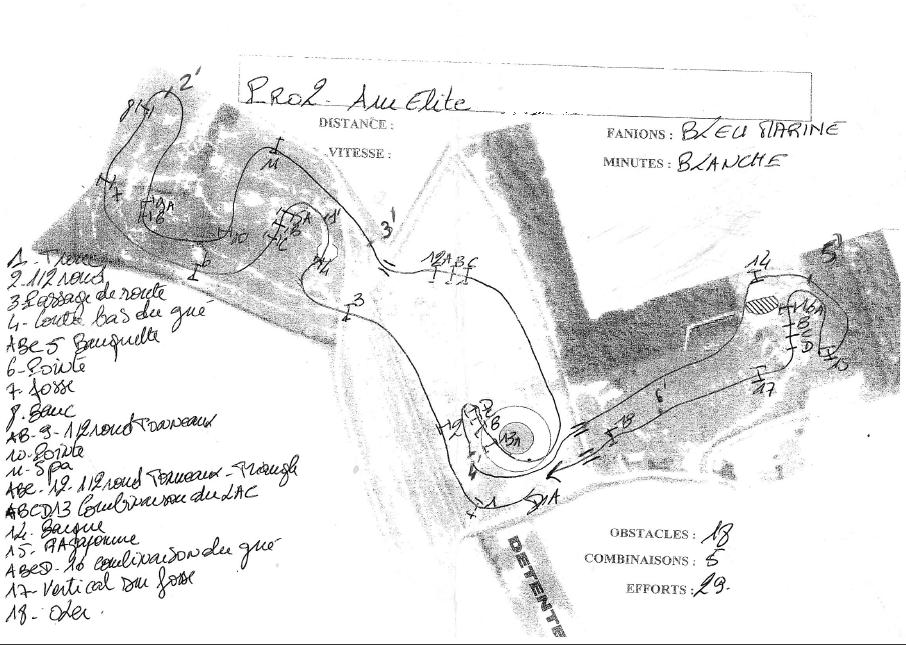 PRO2 - Am Elite
DISTANCE :
VITESSE :
FANIONS : BLEU MARINE
MINUTES : BLANCHE
1 - Tronc
2 - 1/2 rond
3 - Passage de route
4 - Contre bas du gué
ABC - 5 Banquette
6 - Pointe
7 - fosse
8 - Banc
AB - 9 - 1/2 rond Tonneaux
10 - Pointe
11 - Spa
ABC - 12 - 1/2 rond Tonneaux - Triangle
ABCD 13 Combinaison du LAC
14 - Barque
15 -
ABCD - 16 combinaison du gué
17 - Vertical sur fosse
18 - Oxer
OBSTACLES : 18
COMBINAISONS : 5
EFFORTS : 29.
DETENTE
2'
8
7
11
10
1'
3'
3
4
6
12A B C
14
5'
16A
B
C
D
15
17
6'
18
2
13A
B
4'
1